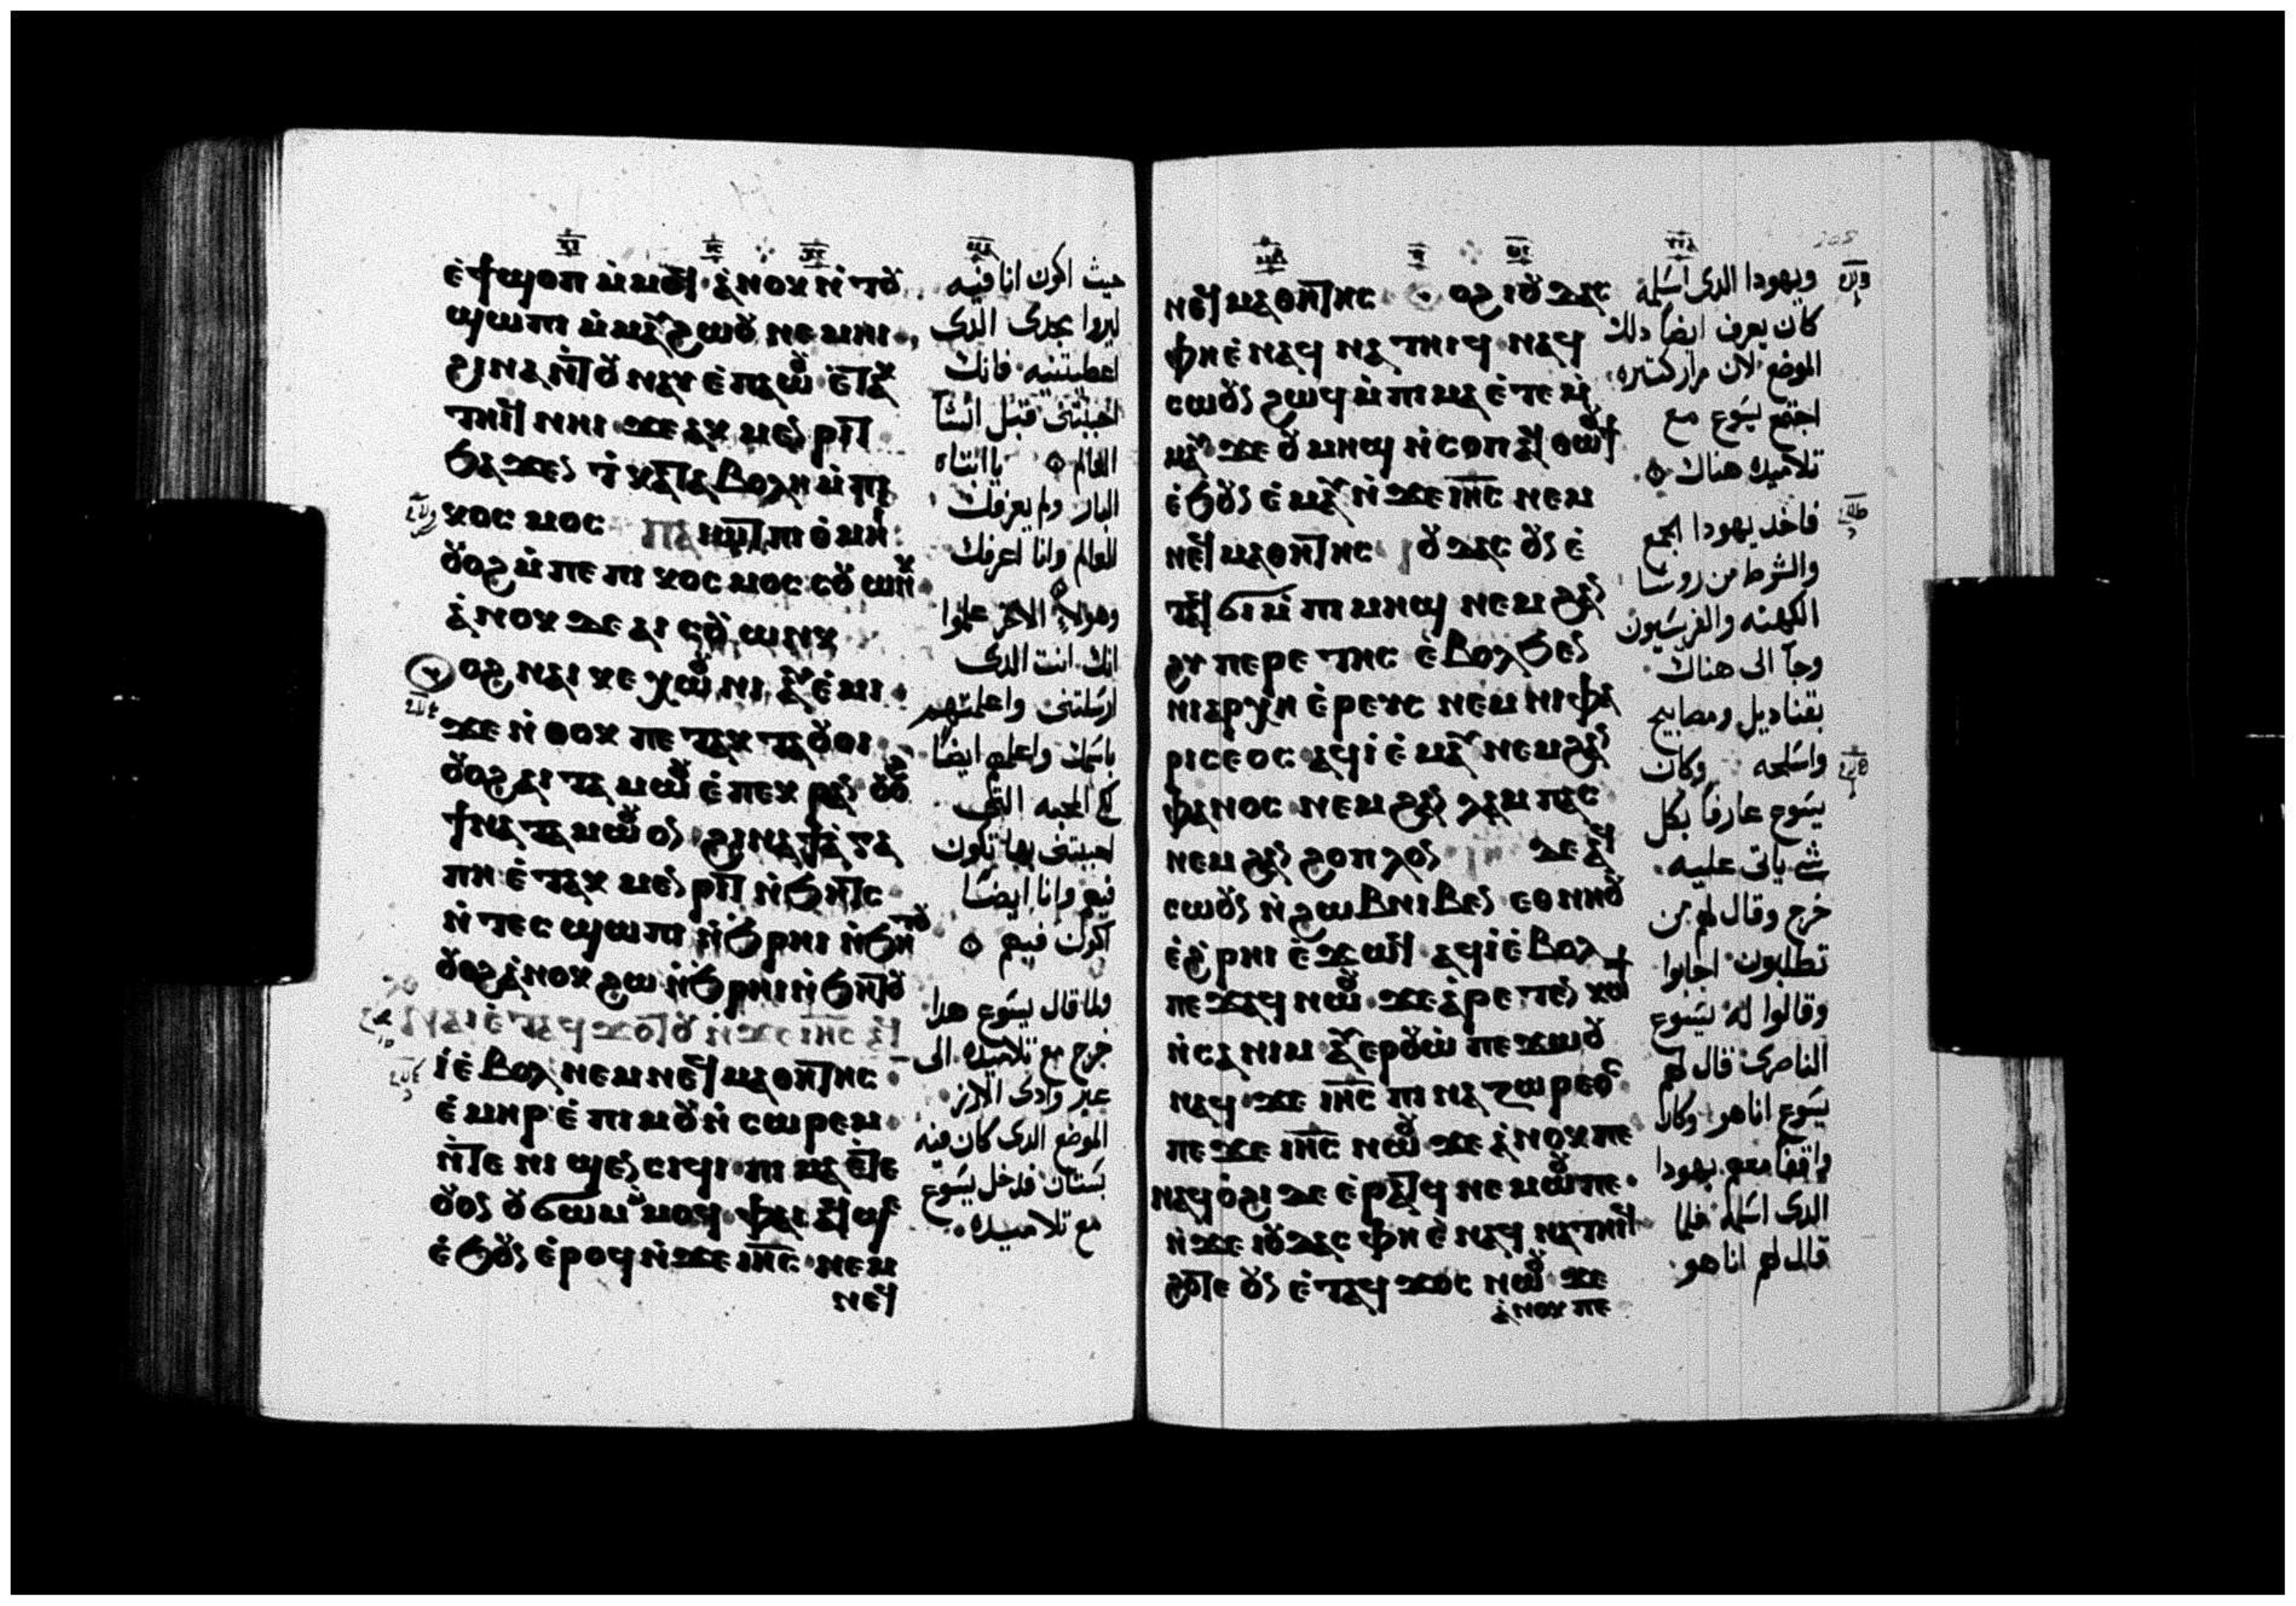 ⲉϯϣⲟⲡ ⲙⲙⲟϥ ⲁⲛⲟⲕ ⲛⲧⲟⲩ
ϣⲱⲡⲓ ⲙⲙⲁⲩ ϩⲱⲟⲩ ⲛⲉⲙⲏⲓ
ϩⲓⲛⲁ ⲛⲧⲟⲩⲛⲁⲩ ⲉⲡⲁⲱⲟⲩ ⲉⲧⲁⲕ
ⲧⲏⲓϥ ⲛⲏⲓ ϫⲉ ⲁⲕⲙⲉⲛⲣⲓⲧ
ϧⲁϫⲉⲛ ⲧⲕⲁⲧⲁⲃⲟⲗⲏ ⲙⲡⲓ
ⲕⲟⲥⲙⲟⲥ ⲡⲁⲓⲱⲧ ⲡⲓⲑⲙⲏⲓ
ⲟⲩⲟϩ ⲙⲡⲉ ⲡⲓⲕⲟⲥⲙⲟⲥ ⲥⲟⲩⲱⲛⲕ
ⲁⲛⲟⲕ ⲇⲉ ⲁⲓⲥⲟⲩⲱⲛⲕ
ⲟⲩⲟϩ ⲛⲁⲓⲕⲉⲭⲱⲟⲩⲛⲓ ⲁⲩⲉⲙⲓ
ϫⲉ ⲛⲑⲟⲕ ⲡⲉⲧⲁⲕⲧⲁⲟⲩⲟⲓ
ⲟⲩⲟϩ ⲁⲓⲧⲁⲙⲱⲟⲩ ⲉⲡⲉⲕⲣⲁⲛ ⲟⲩⲟϩ
ϯⲛⲁⲧⲁⲙⲱⲟⲩ ⲟⲛ ϩⲓⲛⲁ ϯⲁⲅⲁ
ⲡⲏ ⲉⲧⲁⲕⲙⲉⲛⲣⲓⲧ ⲛϧⲏⲧⲥ
ⲛⲧⲉⲥϣⲱⲡⲓ ⲛϧⲣⲏⲓ ⲛϧⲏⲧⲟⲩ
ⲟⲩⲟϩ ⲁⲛⲟⲕ ϩⲱ ⲛϧⲣⲏⲓ ⲛϧⲏⲧⲟⲩ
ⲛⲁⲓ ⲉⲧⲁϥϫⲟⲧⲟⲩ ⲛϫⲉ ⲓⲏⲥ ⲁϥ
ⲓ ⲉⲃⲟⲗ ⲛⲉⲙ ⲛⲉϥⲙⲁⲑⲏⲧⲏⲥ
ⲉⲙⲏⲣ ⲉⲡⲓⲙⲟⲩⲛⲥⲱⲣⲉⲙ
ⲛⲧⲉ ⲛⲓϣⲉⲛⲥⲓϥⲓ ⲡⲓⲙⲁ ⲉⲧⲉ
ⲟⲩⲟⲛ ⲟⲩϭⲱⲙ ⲙⲙⲟϥ ⲫⲁⲓ ⲉⲧⲁϥϣⲉ
ⲉϧⲟⲩⲛ ⲉⲣⲟϥ ⲛϫⲉ ⲓⲏⲥ ⲛⲉⲙ
ⲛⲉϥ
حيث اكون انا فيه
ليروا مجدى الدى
اعطيتنيه فانك
احببتنى قبل انشا
العالم يا ابتاه
البار ولم يعرفك
العالم وانا اعرفك
وهولاء الاخر علموا
انك انت الدى
ارسلتنى واعلمتهم
باسمك واعلمهم ايضا
كى المحبه التى
احببتنى بها تكون
فيهم وانا ايضا
اكون فيهم
ولما قال يسوع هدا
خرج مع تلاميده الى
عبر وادى الارز
الموضع الدى كان فيه
بستان فدخل يسوع
مع تلاميده
ⲛⲉϥⲙⲁⲑⲏⲧⲏⲥ ⲟⲩⲟϩ ⲓⲟⲩⲇⲁⲥ
ⲫⲏ ⲉⲛⲁϥⲛⲁⲧⲏⲓϥ ⲛⲁϥ
ⲥⲱⲟⲩⲛ ϩⲱϥ ⲙⲡⲓⲙⲁ ⲉⲧⲉⲙ
ⲙⲁⲩ ϫⲉ ⲟⲩⲙⲏϣ ⲛⲥⲟⲡ ⲁϥⲑⲱⲟⲩϯ
ⲉϧⲟⲩⲛ ⲉⲙⲁⲩ ⲛϫⲉ ⲓⲏⲥ ⲛⲉⲙ
ⲛⲉϥⲙⲁⲑⲏⲧⲏⲥ ⲓⲟⲩⲇⲁⲥ ⲟⲩⲛ ⲉ
ⲧⲁϥϭⲓ ⲙⲡⲓⲙⲏϣ ⲛⲉⲙ ϩⲁⲛ
ϩⲩⲡⲉⲣⲉⲧⲏⲥ ⲉⲃⲟⲗ ϧⲉⲛ
ⲛⲓⲁⲣⲭⲏⲉⲣⲉⲩⲥ ⲛⲉⲙ ⲛⲓⲫⲁ
ⲣⲓⲥⲉⲟⲥ ⲁϥⲓ ⲉⲙⲁⲩ ⲛⲉⲙ ϩⲁⲛ
ⲫⲁⲛⲟⲥ ⲛⲉⲙ ϩⲁⲛ ⲗⲁⲙⲡⲁⲥ
ⲛⲉⲙ ϩⲁⲛ ϩⲟⲡⲗⲟⲛ ⲓⲏⲥ ⲇⲉ ⲛⲁϥ
ⲥⲱⲟⲩⲛ ⲛϩⲱⲃ ⲛⲓⲃⲉⲛ ⲉⲑⲛⲏⲟⲩ
ⲉϩⲣⲏⲓ ⲉϫⲱϥ ⲁϥⲓ ⲉⲃⲟⲗ
ⲡⲉϫⲁϥ ⲛⲱⲟⲩ ϫⲉ ⲁⲣⲉⲧⲉⲛⲕⲱϯ
ⲛⲥⲁ ⲛⲓⲙ ⲁⲩⲉⲣⲟⲩⲱ ⲡⲉϫⲱⲟⲩ
ⲛⲁϥ ϫⲉ ⲓⲏⲥ ⲡⲓⲛⲁⲍⲱⲣⲉⲟⲥ
ⲡⲉϫⲉ ⲓⲏⲥ ⲛⲱⲟⲩ ϫⲉ ⲁⲛⲟⲕ ⲡⲉ
ⲛⲁϥⲟϩⲓ ⲇⲉ ⲉⲣⲁⲧϥ ⲛⲉⲙⲱⲟⲩ ⲡⲉ
ⲛϫⲉ ⲓⲟⲩⲇⲁⲥ ⲫⲏ ⲉⲛⲁϥⲛⲁⲧⲏⲓϥ
ϩⲟⲧⲉ ⲟⲩⲛ ⲉⲧⲁϥϫⲟⲥ ⲛⲱⲟⲩ ϫⲉ
ⲁⲛⲟⲕ ⲡⲉ
ويهودا الدى اسلمه
كان يعرف ايضا دلك
الموضع لان مرار كتيره
اجتمع يسوع مع
تلاميده هناك
فاخد يهودا الجمع
والشرط من روسا
الكهنه والفريسيون
وجآ الى هناك
بقناديل ومصابيح
واسلحه وكان
يسوع عارفا بكل
شى ياتى عليه
خرج وقال لهم من
تطلبون اجابوا
وقالوا له يسوع
الناصرى قال لهم
يسوع انا هو وكان
واقفا معهم يهودا
الدى اسلمه فلما
قال لهم انا هو